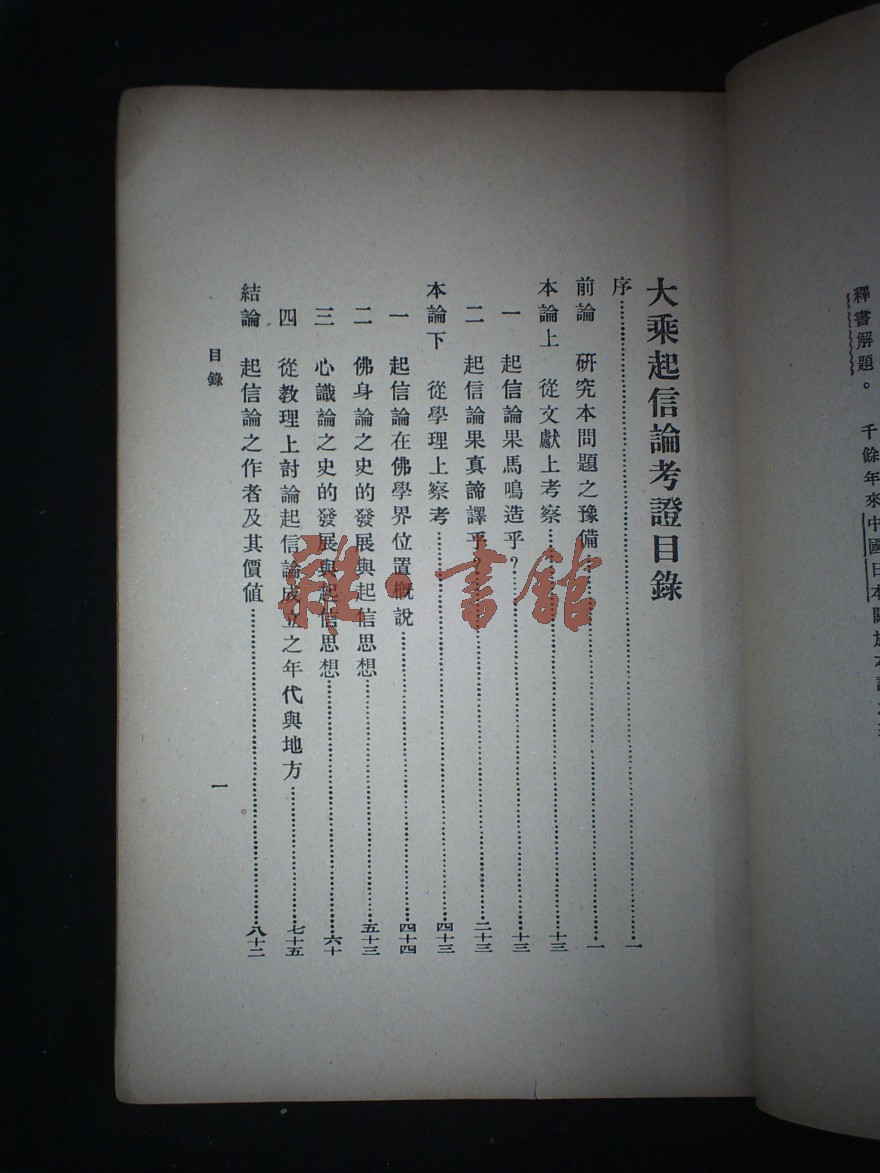 釋書解題。　千餘年來中國日本關於本論之
大乘起信論考證目錄
序……一
前論　研究本問題之豫備……一
本論上　從文獻上考察……十三
一　起信論果馬鳴造乎？……十三
二　起信論果真諦譯乎？……二十三
本論下　從學理上察考……四十三
一　起信論在佛學界位置概說……四十四
二　佛身論之史的發展與起信思想……五十三
三　心識論之史的發展與起信思想……六十
四　從教理上討論起信論成立之年代與地方……七十五
結論　起信論之作者及其價值……八十二
目錄　一
雜·書館